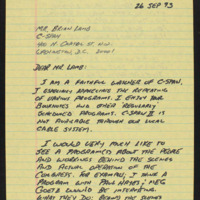 26 SEP 93
MR. BRIAN LAMB
C-SPAN
400 N. CAPITOL ST. N.W.
WASHINGTON, D.C. 20001
DEAR MR. LAMB:
I AM A FAITHFUL WATCHER OF C-SPAN.
I ESPECIALLY APPRECIATE THE REPEATING
OF VARIOUS PROGRAMS. I ENJOY OUR
AND OTHER REGULARLY
SCHEDULED PROGRAMS. C-SPAN II IS
NOT AVAILABLE THROUGH OUR LOCAL
CABLE SYSTEM.
I WOULD VERY MUCH LIKE TO
SEE A PROGRAM(S) ABOUT THE PEOPLE
AND WORKINGS BEHIND THE SCENES
AND ACTUAL OPERATION OF THE
CONGRESS. FOR EXAMPLE, I THINK A
PROGRAM WITH PAUL HAYS, MEG
GOETZ WOULD BE INTERESTING.
WHAT THEY DO, BEHIND THE SCENES